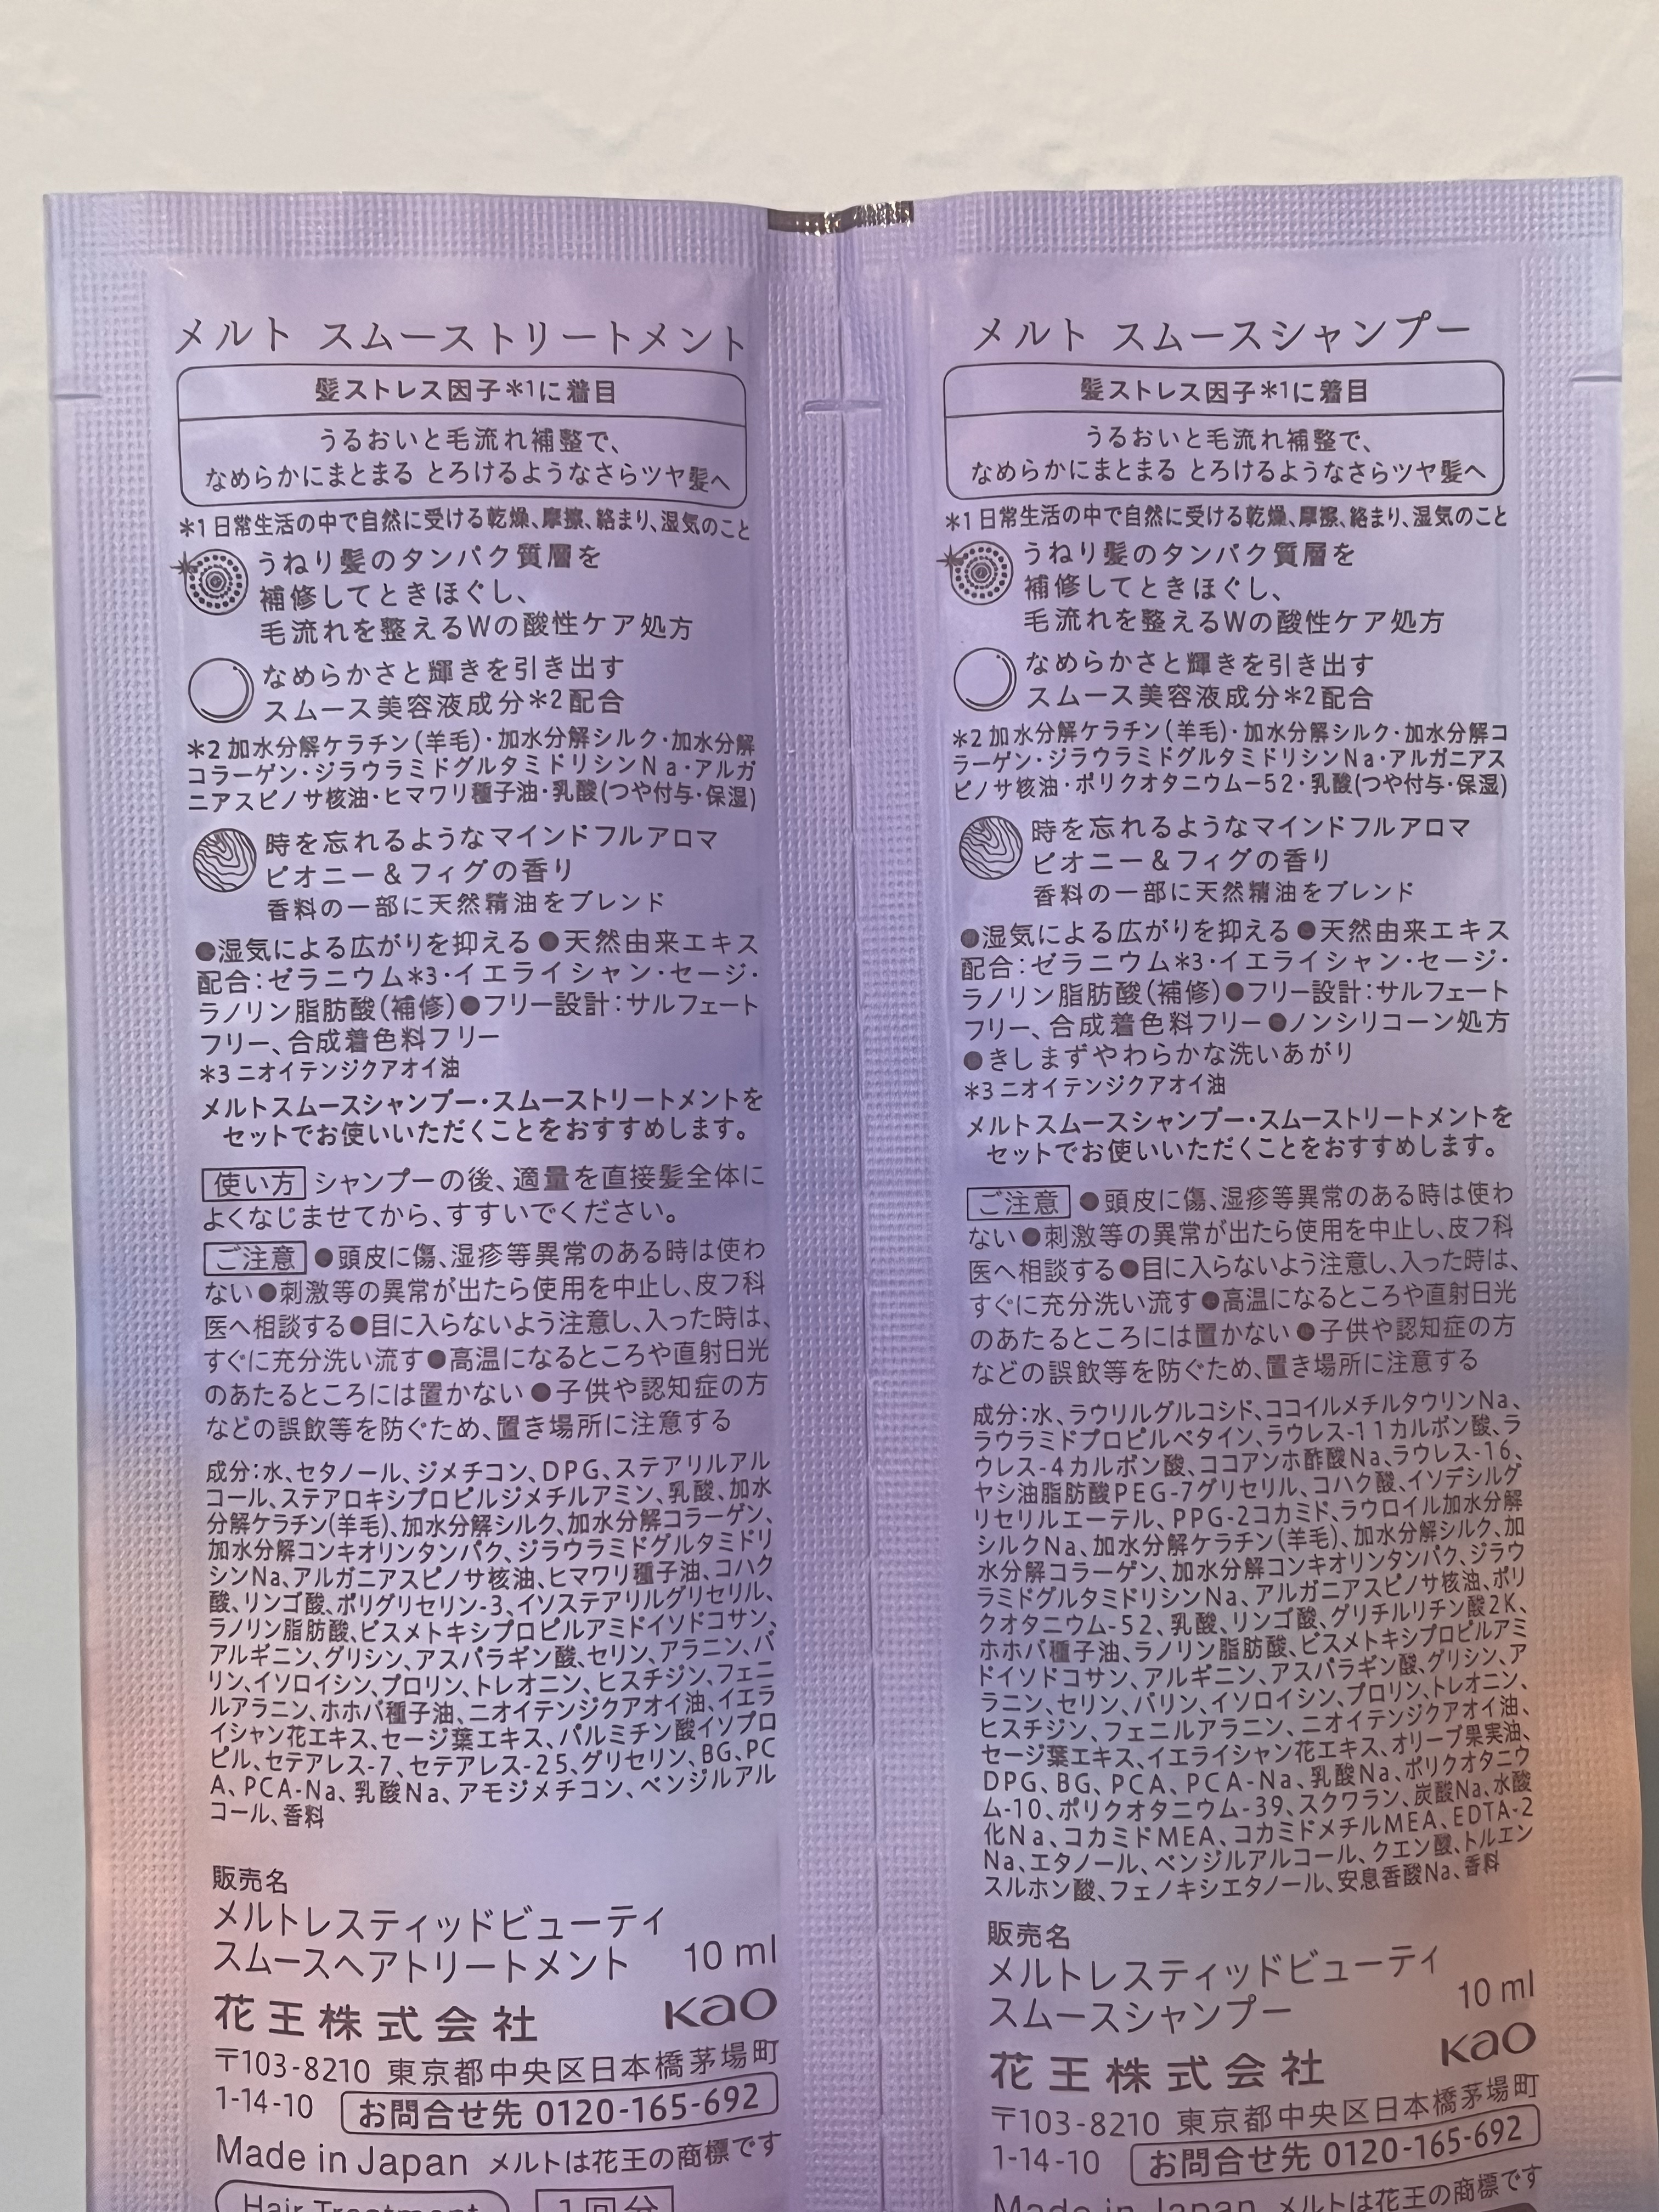 メルト スムーストリートメント
髪ストレス因子*1に着目
うるおいと毛流れ補整で、
なめらかにまとまる とろけるようなさらツヤ髪へ
*1 日常生活の中で自然に受ける乾燥、摩擦、絡まり、湿気のこと
うねり髪のタンパク質層を
補修してときほぐし、
毛流れを整えるWの酸性ケア処方
なめらかさと輝きを引き出す
スムース美容液成分*2配合
*2 加水分解ケラチン(羊毛)・加水分解シルク・加水分解
コラーゲン・ジラウラミドグルタミドリシンNa・アルガ
ニアスピノサ核油・ヒマワリ種子油・乳酸(つや付与・保湿)
時を忘れるようなマインドフルアロマ
ピオニー&フィグの香り
香料の一部に天然精油をブレンド
●湿気による広がりを抑える●天然由来エキス
配合:ゼラニウム*3・イエライシャン・セージ・
ラノリン脂肪酸(補修)●フリー設計:サルフェート
フリー、合成着色料フリー
*3 ニオイテンジクアオイ油
メルトスムースシャンプー・スムーストリートメントを
セットでお使いいただくことをおすすめします。
使い方 シャンプーの後、適量を直接髪全体に
よくなじませてから、すすいでください。
ご注意 ●頭皮に傷、湿疹等異常のある時は使わ
ない●刺激等の異常が出たら使用を中止し、皮フ科
医へ相談する●目に入らないよう注意し、入った時は、
すぐに充分洗い流す●高温になるところや直射日光
のあたるところには置かない●子供や認知症の方
などの誤飲等を防ぐため、置き場所に注意する
成分:水、セタノール、ジメチコン、DPG、ステアリルアル
コール、ステアロキシプロピルジメチルアミン、乳酸、加水
分解ケラチン(羊毛)、加水分解シルク、加水分解コラーゲン、
加水分解コンキオリンタンパク、ジラウラミドグルタミドリ
シンNa、アルガニアスピノサ核油、ヒマワリ種子油、コハク
酸、リンゴ酸、ポリグリセリン-3、イソステアリルグリセリル、
ラノリン脂肪酸、ビスメトキシプロピルアミドイソドコサン、
アルギニン、グリシン、アスパラギン酸、セリン、アラニン、バ
リン、イソロイシン、プロリン、トレオニン、ヒスチジン、フェニ
ルアラニン、ホホバ種子油、ニオイテンジクアオイ油、イエラ
イシャン花エキス、セージ葉エキス、パルミチン酸イソプロ
ピル、セテアレス-7、セテアレス-25、グリセリン、BG、PC
A、PCA-Na、乳酸Na、アモジメチコン、ベンジルアル
コール、香料
販売名
メルトレスティッドビューティ
スムースヘアトリートメント 10 ml
花王株式会社 Kao
〒103-8210 東京都中央区日本橋茅場町
1-14-10 お問合せ先 0120-165-692
Made in Japan メルトは花王の商標です
Hair Treatment 1回分
メルト スムースシャンプー
髪ストレス因子*1に着目
うるおいと毛流れ補整で、
なめらかにまとまる とろけるようなさらツヤ髪へ
*1 日常生活の中で自然に受ける乾燥、摩擦、絡まり、湿気のこと
うねり髪のタンパク質層を
補修してときほぐし、
毛流れを整えるWの酸性ケア処方
なめらかさと輝きを引き出す
スムース美容液成分*2配合
*2 加水分解ケラチン(羊毛)・加水分解シルク・加水分解コ
ラーゲン・ジラウラミドグルタミドリシンNa・アルガニアス
ピノサ核油・ポリクオタニウム-52・乳酸(つや付与・保湿)
時を忘れるようなマインドフルアロマ
ピオニー&フィグの香り
香料の一部に天然精油をブレンド
●湿気による広がりを抑える●天然由来エキス
配合:ゼラニウム*3・イエライシャン・セージ・
ラノリン脂肪酸(補修)●フリー設計:サルフェート
フリー、合成着色料フリー●ノンシリコーン処方
●きしまずやわらかな洗いあがり
*3 ニオイテンジクアオイ油
メルトスムースシャンプー・スムーストリートメントを
セットでお使いいただくことをおすすめします。
ご注意 ●頭皮に傷、湿疹等異常のある時は使わ
ない●刺激等の異常が出たら使用を中止し、皮フ科
医へ相談する●目に入らないよう注意し、入った時は、
すぐに充分洗い流す●高温になるところや直射日光
のあたるところには置かない●子供や認知症の方
などの誤飲等を防ぐため、置き場所に注意する
成分:水、ラウリルグルコシド、ココイルメチルタウリンNa、
ラウラミドプロピルベタイン、ラウレス-11カルボン酸、ラ
ウレス-4カルボン酸、ココアンホ酢酸Na、ラウレス-16、
ヤシ油脂肪酸PEG-7グリセリル、コハク酸、イソデシルグ
リセリルエーテル、PPG-2コカミド、ラウロイル加水分解
シルクNa、加水分解ケラチン(羊毛)、加水分解シルク、加
水分解コラーゲン、加水分解コンキオリンタンパク、ジラウ
ラミドグルタミドリシンNa、アルガニアスピノサ核油、ポリ
クオタニウム-52、乳酸、リンゴ酸、グリチルリチン酸2K、
ホホバ種子油、ラノリン脂肪酸、ビスメトキシプロピルアミ
ドイソドコサン、アルギニン、アスパラギン酸、グリシン、ア
ラニン、セリン、バリン、イソロイシン、プロリン、トレオニン、
ヒスチジン、フェニルアラニン、ニオイテンジクアオイ油、
セージ葉エキス、イエライシャン花エキス、オリーブ果実油、
DPG、BG、PCA、PCA-Na、乳酸Na、ポリクオタニウ
ム-10、ポリクオタニウム-39、スクワラン、炭酸Na、水酸
化Na、コカミドMEA、コカミドメチルMEA、EDTA-2
Na、エタノール、ベンジルアルコール、クエン酸、トルエン
スルホン酸、フェノキシエタノール、安息香酸Na、香料
販売名
メルトレスティッドビューティ
スムースシャンプー 10 ml
花王株式会社 Kao
〒103-8210 東京都中央区日本橋茅場町
1-14-10 お問合せ先 0120-165-692
Made in Japan メルトは花王の商標です